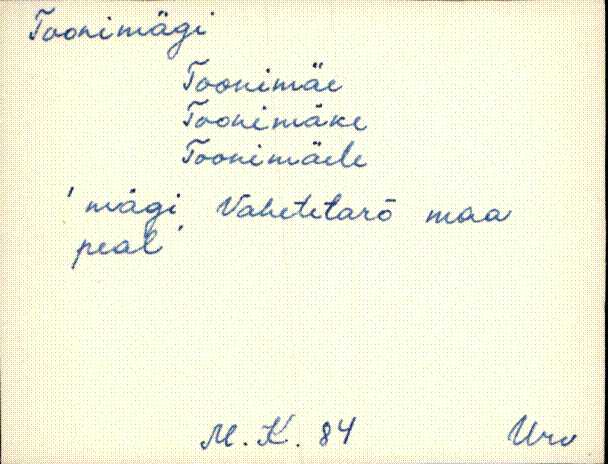 Toonimägi
Toonimäe
Toonimäke
Toonimäele
'mägi Vahetetarõ maa
peal'
M. K. 84 Urv